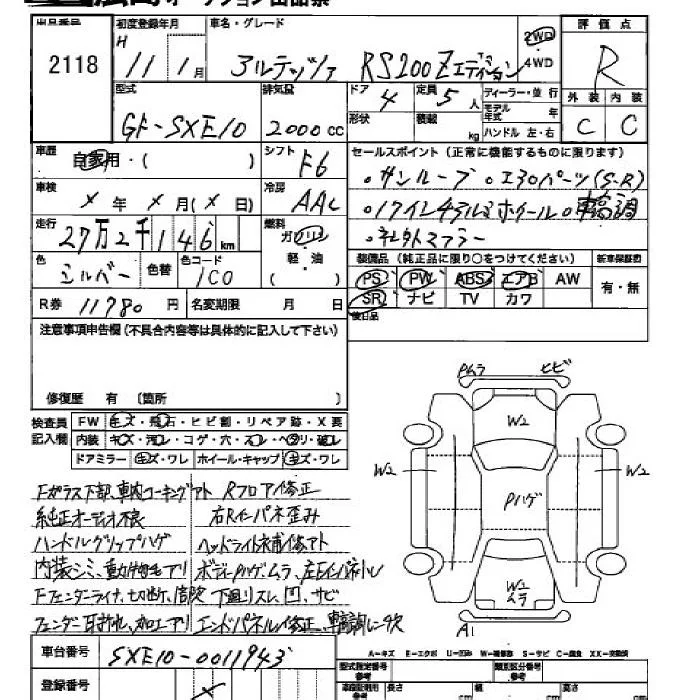 出品番号 初度登録年月 車名・グレード 評価点
2118 H 11年 1月 アルテッツァ RS200 Zエディション 2WD 4WD R
型式 排気量 ドア 定員 ディーラー・並行 外装 内装
GF-SXE10 2000cc 4 5人 モデル年式 年 C C
形状 積載 kg ハンドル 左・右
車歴 自家用・( ) シフト F6 セールスポイント(正常に機能するものに限ります)
車検 ×年×月(×日) 冷房 AAC 。サンルーフ 。エアロパーツ(S-R)
。17インチアルミホイール 。車高調
走行 27万2千146km 燃料 ガソリン 軽油 ( )
色 シルバー 色替 色コード 1C0 装備品(純正品に限り○をつけてください) 新車保証書
PS PW ABS エアB AW 有・無
R券 11780円 名変期限 月 日 SR ナビ TV カワ
注意事項申告欄(不具合内容等は具体的に記入して下さい) 後日品
修復歴 有 〔箇所 〕
検査員記入欄 FW キズ・飛石・ヒビ割・リペア跡・X要
内装 キズ・汚レ・コゲ・穴・スレ・ヘタリ・破レ
ドアミラー キズ・ワレ ホイール・キャップ キズ・ワレ
Pムラ ヒビ
W2
W2 Pハゲ W2
W2 ムラ
A1
Fガラス下部、車内コーキングアト Rフロア修正
純正オーディオ不良 右Rインパネ歪み
ハンドルグリップハゲ ヘッドライト補修アト
内装シミ、動物毛アリ ボディPハゲ、ムラ、
Fフェンダーライナー切断、 下廻リスレ、凹、サビ
フェンダー耳折れ、加工アリ エンドパネル修正、車高調
車台番号 SXE10-0011943 A-キズ E-エクボ U-凹み W-補修跡 S-サビ C-腐食 XX-交換済
登録番号 × 型式指定番号 類別区分番号
長さ cm 幅 cm 高さ cm